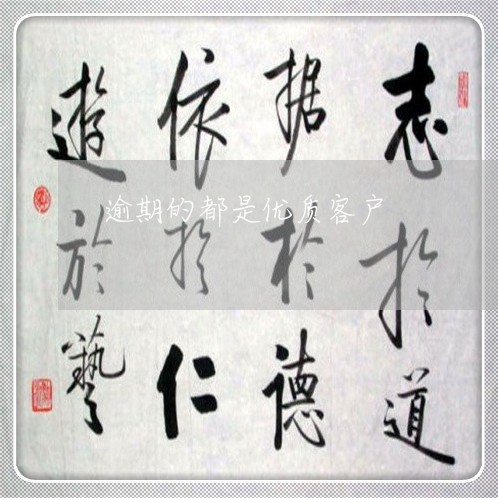 志扵道
据扵德
依扵仁
遊於藝
逾期的都是优质客户